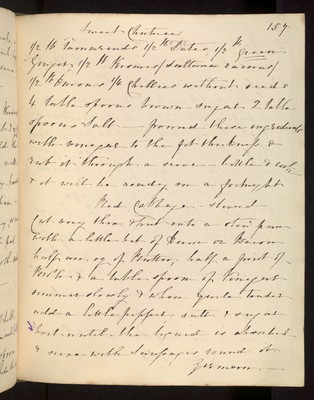 157
Sweet Chutnee
1/2 lb Tamarinds 1/2 lb Dates, 1/2 lb Green
Ginger, 1/2 lb Kismis (Sultana raisins)
1/2 lb Onions 1/4 Chillies without seeds
4 table spoons brown sugar 2 table
spoons Salt — pound these ingredients
with vinegar to the thickness &
rub it through a sieve bottle & cork
& it will be ready in a fortnight
Red Cabbage Stewed
Cut very thin & put into a stew pan
with a little bit of Ham or Bacon
half an oz of Butter, half a pint of
Broth & a table spoon of Vinegar
simmer slowly & when quite tender
add a little pepper salt & sugar
boil until the liquid is absorbed
& serve with Sausages round it
German —